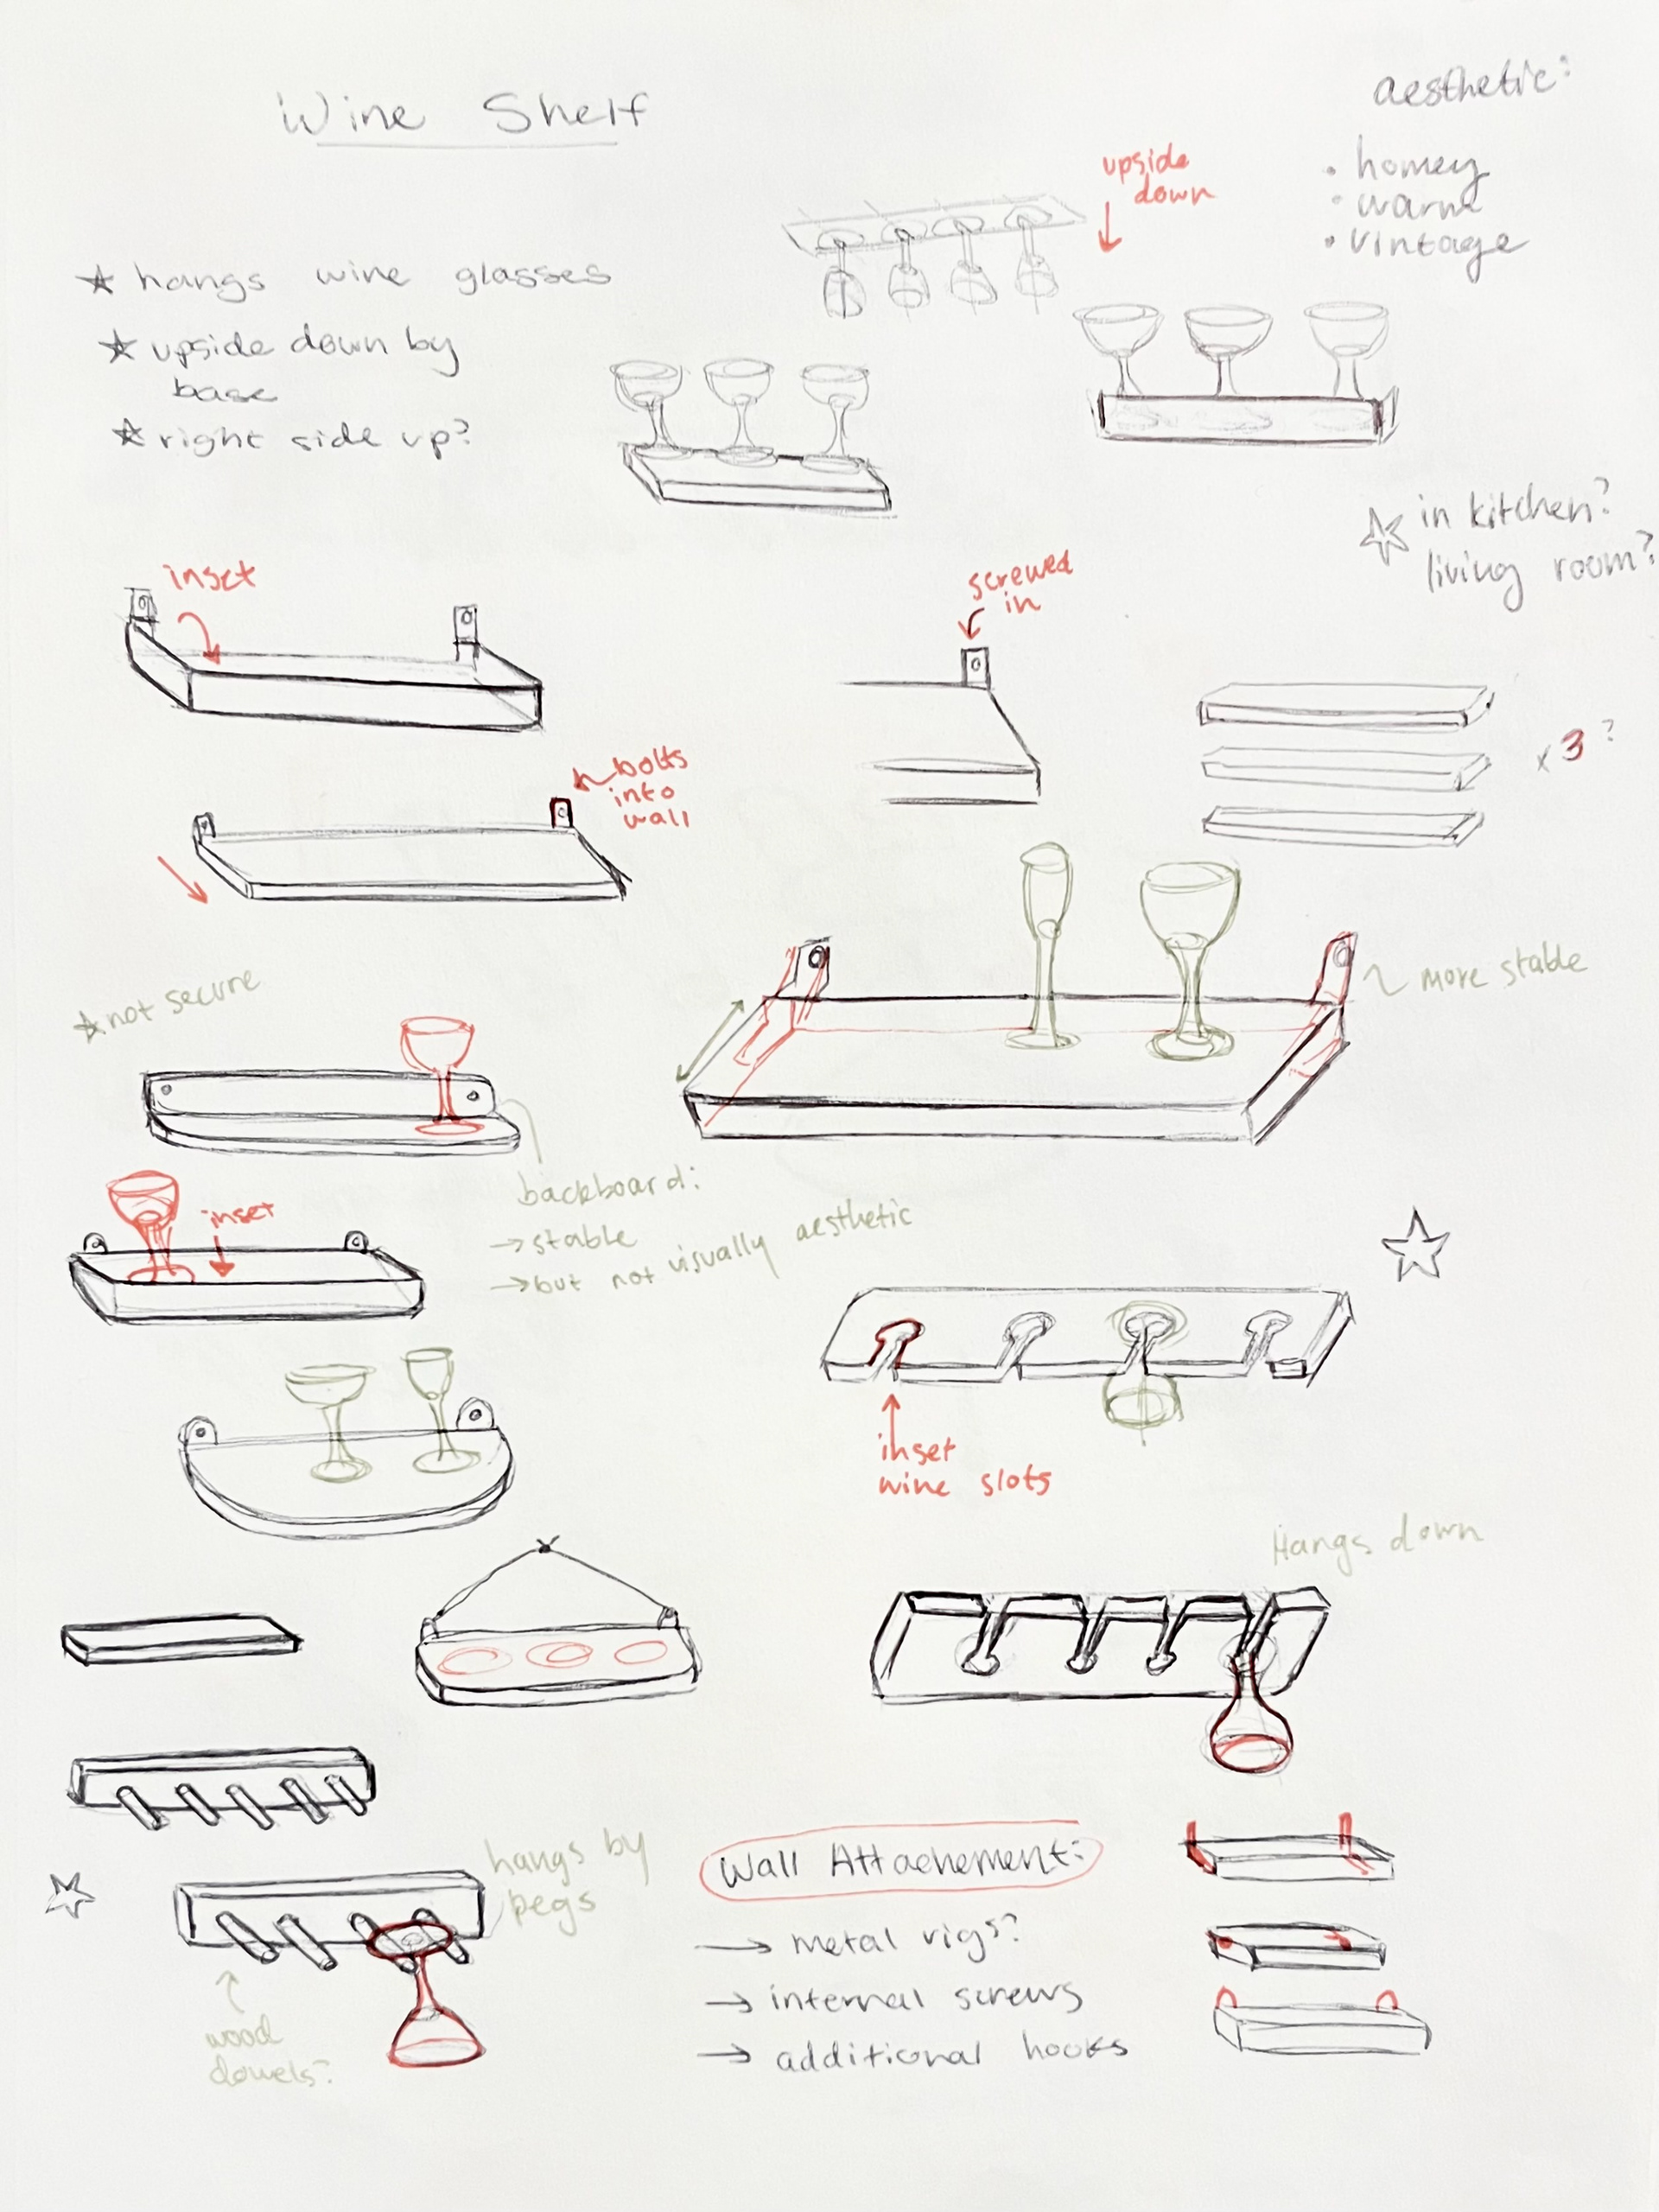 Wine Shelf
aesthetic:
• homey
• warm
• vintage
upside
down
☆ hangs wine glasses
☆ upside down by
base
☆ right side up?
☆ in kitchen?
living room?
inset
screwed
in
x 3 ?
bolts
into
wall
☆ not secure
more stable
backboard:
→ stable
→ but not visually aesthetic
inset
inset
wine slots
Hangs down
hangs by
pegs
wood
dowels?
Wall Attachement:
→ metal rigs?
→ internal screws
→ additional hooks